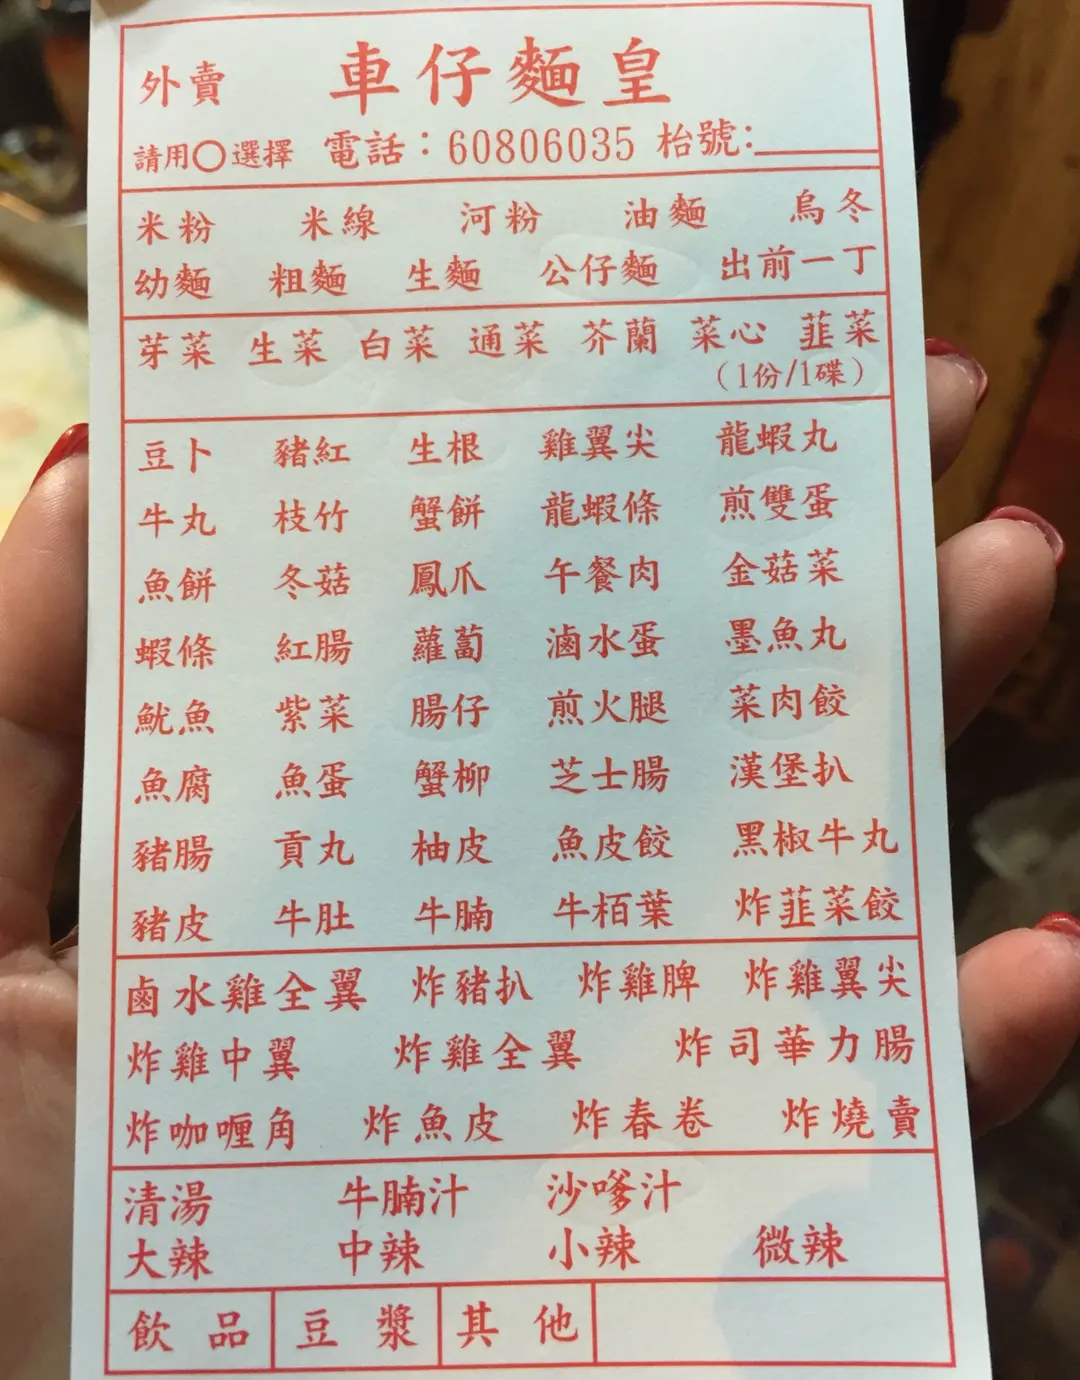 外賣 車仔麵皇
請用○選擇 電話：60806035 枱號:
米粉 米線 河粉 油麵 烏冬
幼麵 粗麵 生麵 公仔麵 出前一丁
芽菜 生菜 白菜 通菜 芥蘭 菜心 韮菜
（1份/1碟）
豆卜 豬紅 生根 雞翼尖 龍蝦丸
牛丸 枝竹 蟹餅 龍蝦條 煎雙蛋
魚餅 冬菇 鳳爪 午餐肉 金菇菜
蝦條 紅腸 蘿蔔 滷水蛋 墨魚丸
魷魚 紫菜 腸仔 煎火腿 菜肉餃
魚腐 魚蛋 蟹柳 芝士腸 漢堡扒
豬腸 貢丸 柚皮 魚皮餃 黑椒牛丸
豬皮 牛肚 牛腩 牛栢葉 炸韮菜餃
鹵水雞全翼 炸豬扒 炸雞脾 炸雞翼尖
炸雞中翼 炸雞全翼 炸司華力腸
炸咖喱角 炸魚皮 炸春卷 炸燒賣
清湯 牛腩汁 沙嗲汁
大辣 中辣 小辣 微辣
飲品 豆漿 其他